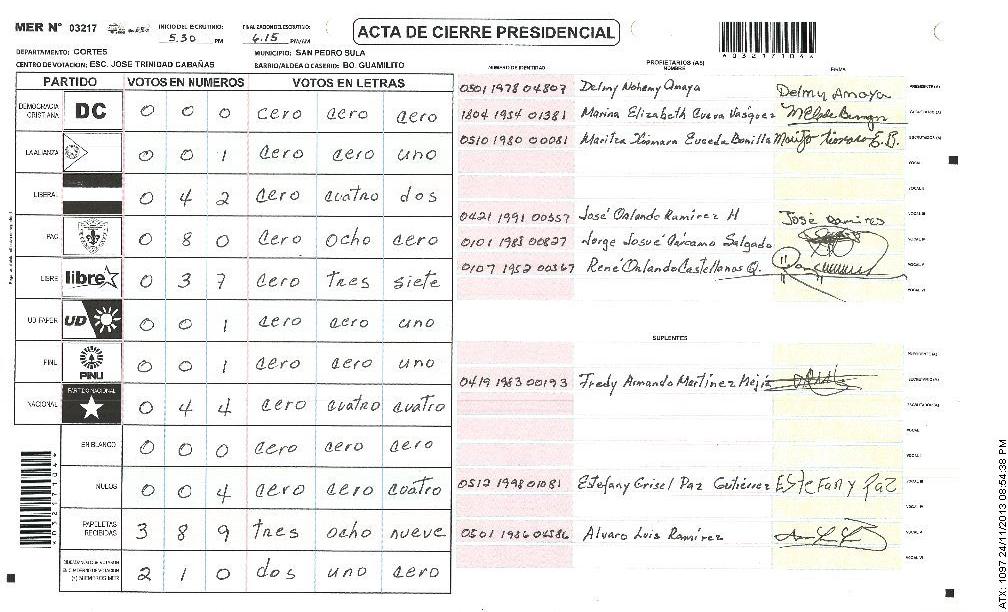 MER Nº 03217
INICIO DEL ESCRUTINIO: 5.30 PM
FINALIZACION DEL ESCRUTINIO: 6.15 PM/AM
ACTA DE CIERRE PRESIDENCIAL
DEPARTAMENTO: CORTES
MUNICIPIO: SAN PEDRO SULA
CENTRO DE VOTACION: ESC. JOSE TRINIDAD CABAÑAS
BARRIO/ALDEA O CASERIO: BO. GUAMILITO
PARTIDO VOTOS EN NUMEROS VOTOS EN LETRAS
DEMOCRACIA CRISTIANA DC 0 0 0 cero cero cero
LA ALIANZA 0 0 1 cero cero uno
LIBERAL 0 4 2 cero cuatro dos
PAC 0 8 0 cero ocho cero
LIBRE libre 0 3 7 cero tres siete
UD FAPER UD 0 0 1 cero cero uno
PINU PINU 0 0 1 cero cero uno
NACIONAL PARTIDO NACIONAL 0 4 4 cero cuatro cuatro
EN BLANCO 0 0 0 cero cero cero
NULOS 0 0 4 cero cero cuatro
PAPELETAS RECIBIDAS 3 8 9 tres ocho nueve
2 1 0 dos uno cero
NUMERO DE IDENTIDAD PROPIETARIOS (AS) NOMBRE FIRMA
0501 1978 04807 Delmy Nohemy Amaya Delmy Amaya PRESIDENTE(A)
1804 1954 01381 Marina Elizabeth Cueva Vasquez SECRETARIO(A)
0510 1980 00081 Maritza Xiomara Euceda Bonilla ESCRUTADOR(A)
VOCAL I
VOCAL II
0421 1991 00557 José Orlando Ramírez H José Ramires VOCAL III
0101 1988 00827 Jorge Josué Cárcamo Salgado VOCAL IV
0107 1952 00367 René Orlando Castellanos Q. VOCAL V
VOCAL VI
SUPLENTES
PRESIDENTE(A)
0419 1983 00193 Fredy Armando Martínez Mejía SECRETARIO(A)
ESCRUTADOR(A)
VOCAL I
VOCAL II
0512 1998 01081 Estefany Grisel Paz Gutiérrez Estefany Paz VOCAL III
VOCAL IV
0501 1986 04586 Alvaro Luis Ramírez VOCAL V
VOCAL VI
ATX: 1097 24/11/2013 08:54:38 PM